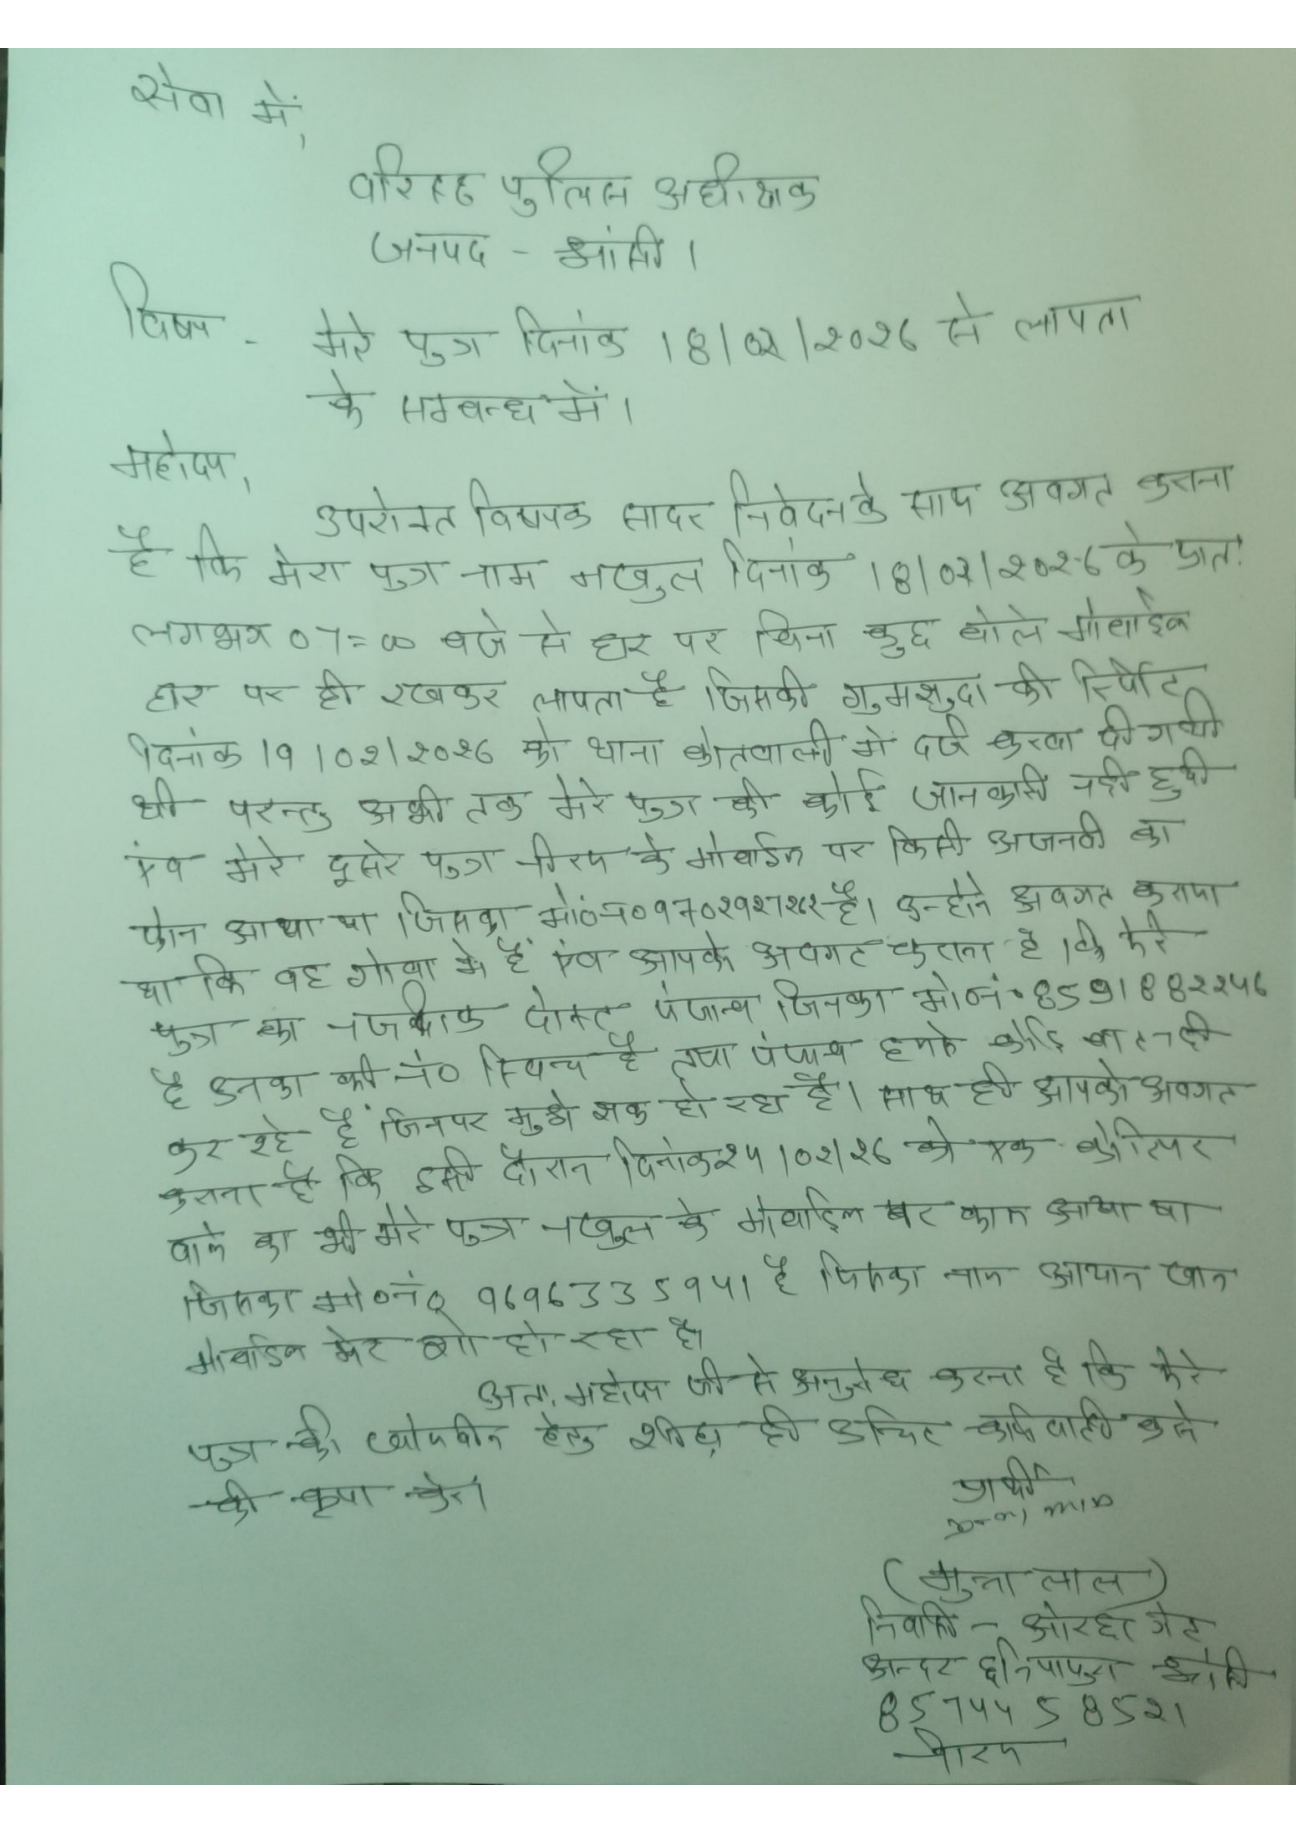 सेवा में,
वरिष्ठ पुलिस अधीक्षक
जनपद - झांसी ।
विषय - मेरे पुत्र दिनांक 18/02/2026 से लापता
के सम्बन्ध में ।
महोदय,
उपरोक्त विषयक सादर निवेदन के साथ अवगत कराना
है कि मेरा पुत्र नाम नखुल दिनांक 18/02/2026 के प्रातः
लगभग 07=00 बजे से घर पर बिना कुछ बोले मोबाईल
घर पर ही रखकर लापता है जिसकी गुमशुदा की रिर्पोट
दिनांक 19/02/2026 को थाना कोतवाली में दर्ज करवा दी गयी
थी परन्तु अभी तक मेरे पुत्र की कोई जानकारी नही हुयी
एंव मेरे दूसरे पुत्र के मोबाईल पर किसी अजनबी का
फोन आया था जिसका मो०न० है। उन्होने अवगत कराया
था कि वह गोवा मे हैं एंव आपको अवगत कराना है कि मेरे
पुत्र का नजदीक दोस्त जिनका मो०नं० 8591882246
है उनका भी नं० स्विच है तथा हमसे कोई बात नही
कर रहे हैं जिनपर मुझे शक हो रहा है। साथ ही आपको अवगत
कराना है कि इसी दौरान दिनांक 24/02/26 को एक कोरियर
वाले का भी मेरे पुत्र नखुल के मोबाईल पर काल आया था
जिसका मो०नं० 9696335941 है जिसका नाम आयान खान
मोबाईल मेट शो हो रहा है।
अतः महोदय जी से अनुरोध करना है कि मेरे
पुत्र की खोजबीन हेतु शीघ्र ही उचित कार्यवाही करने
की कृपा करें।
प्रार्थी
(मुन्ना लाल)
निवासी - ओरछा गेट
अन्दर छनियापुरा झांसी
8574458521